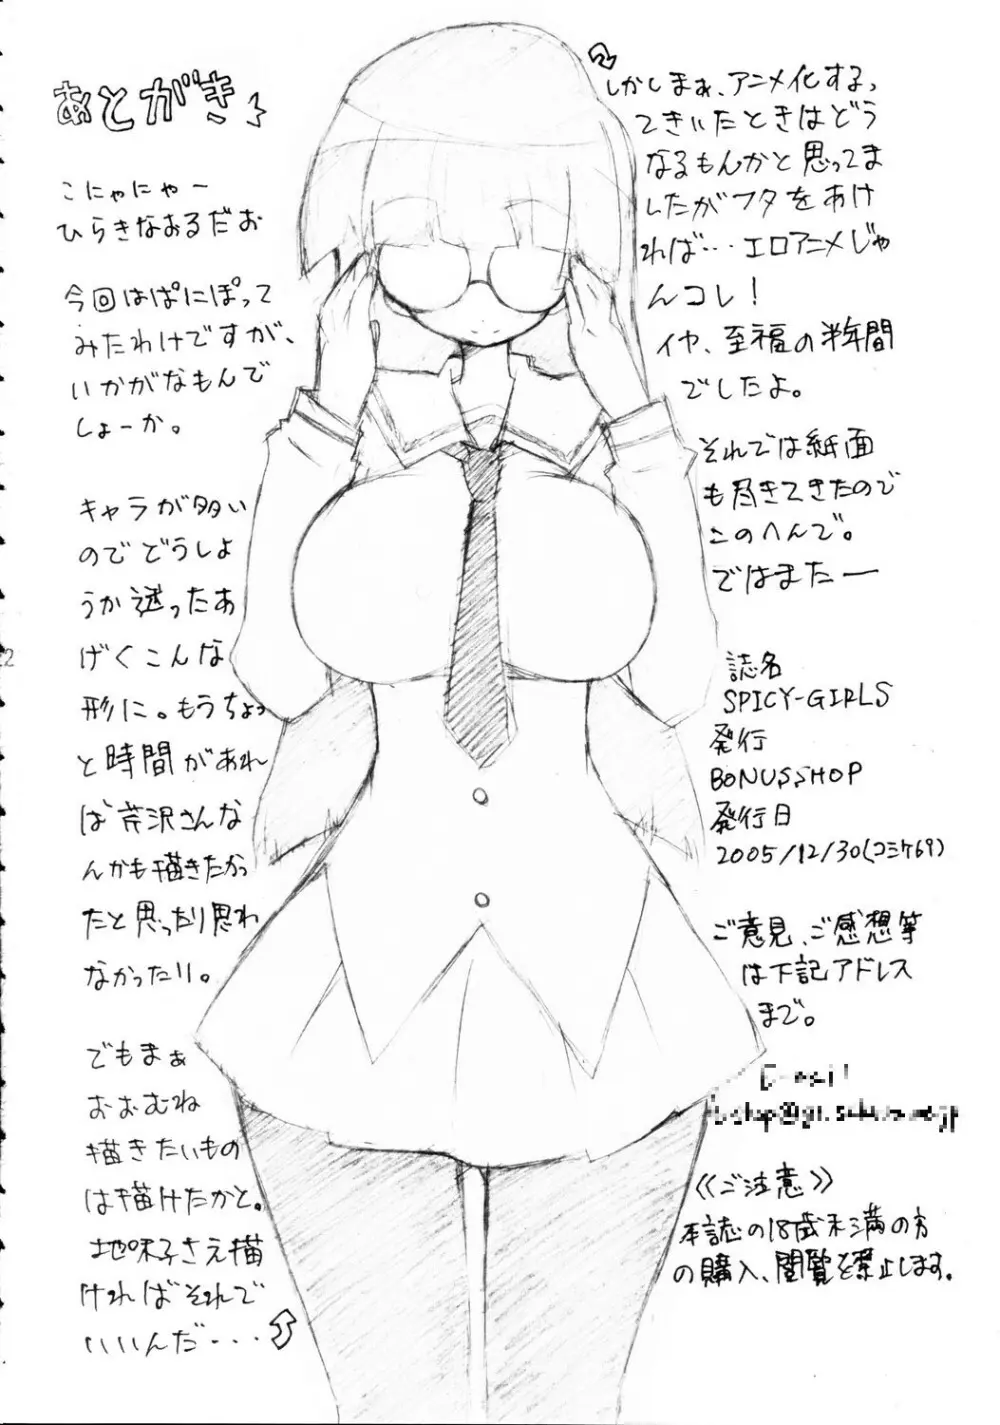 あとがき
こにゃにゃー
ひらきなおるだお
今回はぱにぽって
みたわけですが、
いかがなもんで
しょーか。
キャラが多い
のでどうしよ
うか迷ったあ
げくこんな
形に。もうちょっ
と時間があれ
ば芹沢さんな
んかも描きたかっ
たと思ったり思わ
なかったり。
でもまぁ
おおむね
描きたいもの
は描けたかと。
地味子さえ描
ければそれで
いいんだ・・・
しかしまぁ、アニメ化する、
てきいたときはどう
なるもんかと思ってま
したがフタをあけ
れば・・・エロアニメじゃ
んコレ！
イヤ、至福の半年間
でしたよ。
それでは紙面
も尽きてきたので
このへんで。
ではまたー
誌名
SPICY-GIRLS
発行
BONUSSHOP
発行日
2005/12/30(コミケ69)
ご意見、ご感想等
は下記アドレス
まで。
《ご注意》
本誌の18歳未満の方
の購入、閲覧を禁止します。